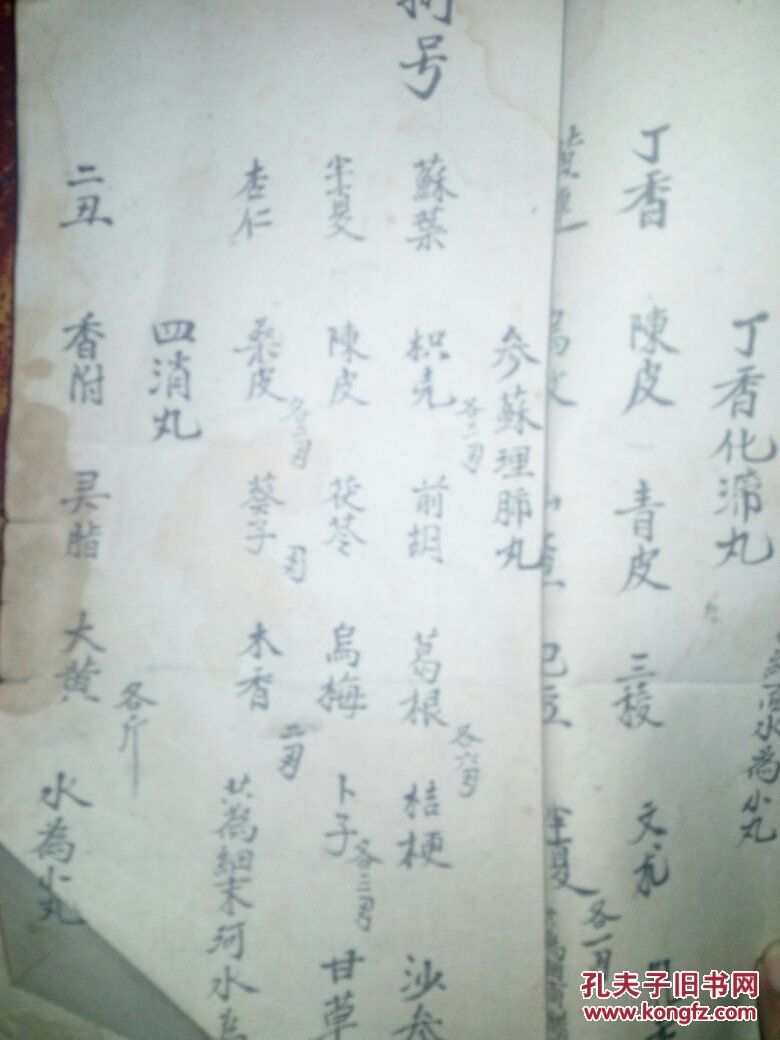 丁香化滞丸
水為小丸
丁香 陳皮 青皮 三稜 文朮
半夏 各一刄
号
參蘇理肺丸
蘇葉 枳壳 各二刄 前胡 葛根 各六刄 桔梗 沙參
半夏 陳皮 茯苓 烏梅 卜子 各三刄 甘草
杏仁 桑皮 各三刄 葵子 刄 木香 二刄 共為細末河水為
四消丸
二丑 香附 灵脂 大黄 各斤 水為小丸
孔夫子旧书网
www.kongfz.com